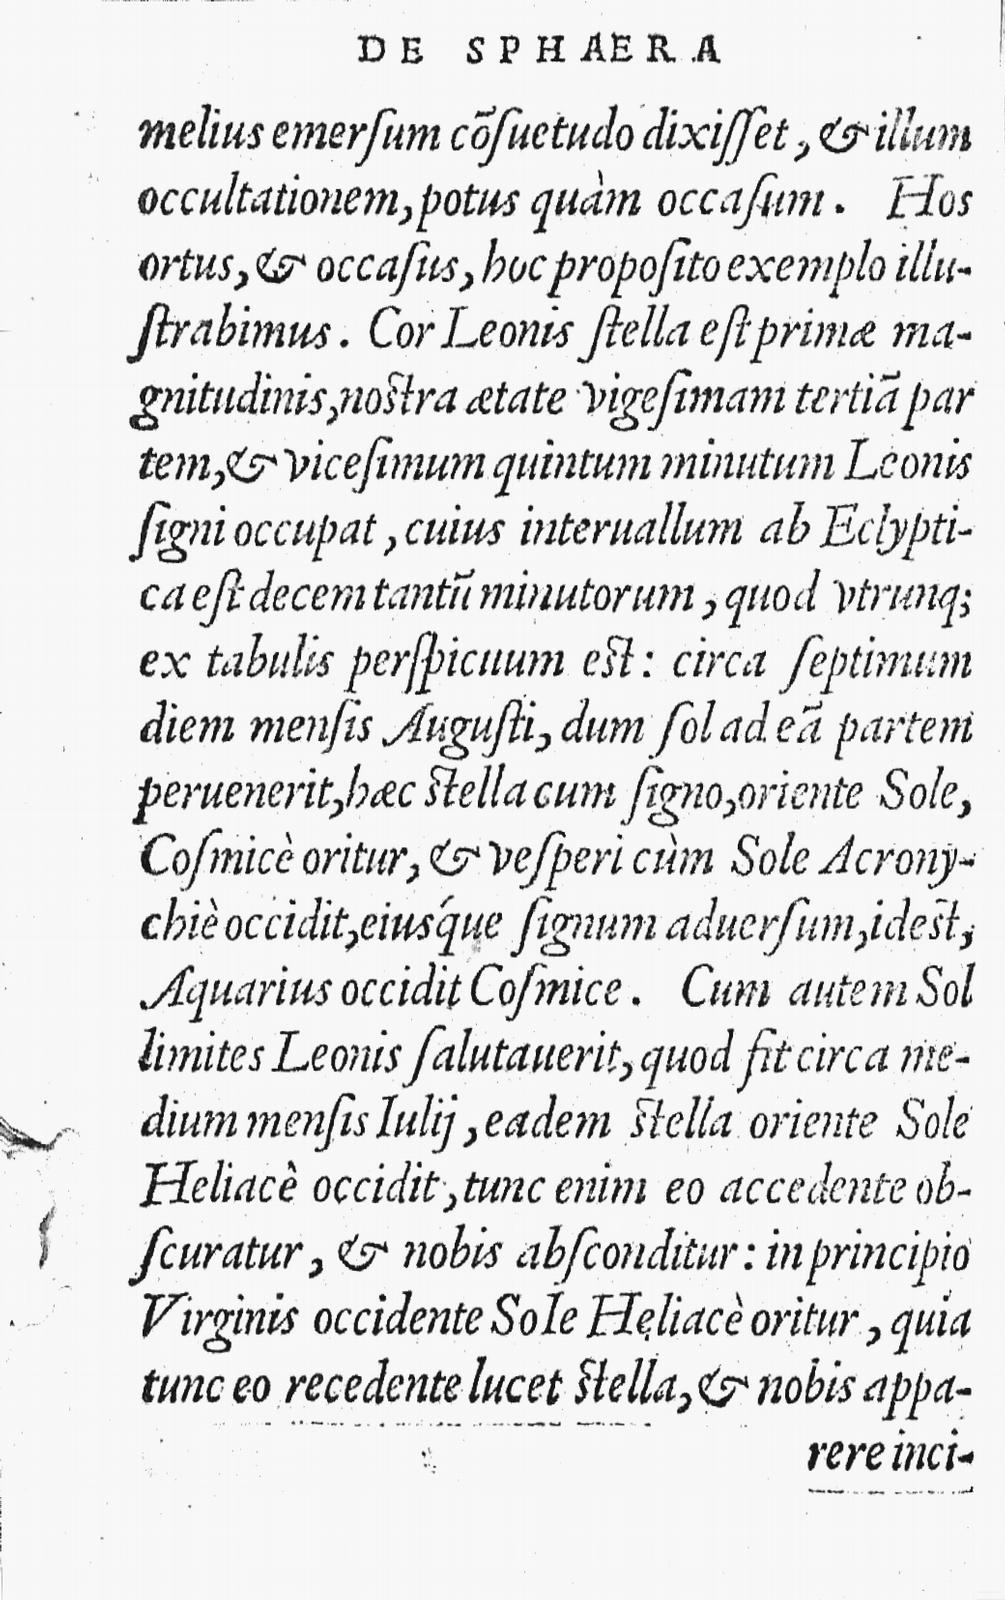 DE SPHAERA
melius emerſum cõſuetudo dixiſſet, & illum
occultationem, potus quàm occaſum. Hos
ortus, & occaſus, hoc propoſito exemplo illu-
ſtrabimus. Cor Leonis ſtella eſt primæ ma-
gnitudinis, noſtra ætate vigeſimam tertiã par
tem, & viceſimum quintum minutum Leonis
ſigni occupat, cuius interuallum ab Eclypti-
ca eſt decem tantũ minutorum, quod vtrunq;
ex tabulis perſpicuum eſt: circa ſeptimum
diem menſis Auguſti, dum ſol ad eã partem
peruenerit, hæc ſtella cum ſigno, oriente Sole,
Coſmicè oritur, & veſperi cùm Sole Acrony-
chiè occidit, eiusq́ue ſignum aduerſum, id eſt,
Aquarius occidit Coſmice. Cum autem Sol
limites Leonis ſalutauerit, quod fit circa me-
dium menſis Iulij, eadem ſtella oriente Sole
Heliacè occidit, tunc enim eo accedente ob-
ſcuratur, & nobis abſconditur: in principio
Virginis occidente Sole Heliacè oritur, quia
tunc eo recedente lucet ſtella, & nobis appa-
rere inci-